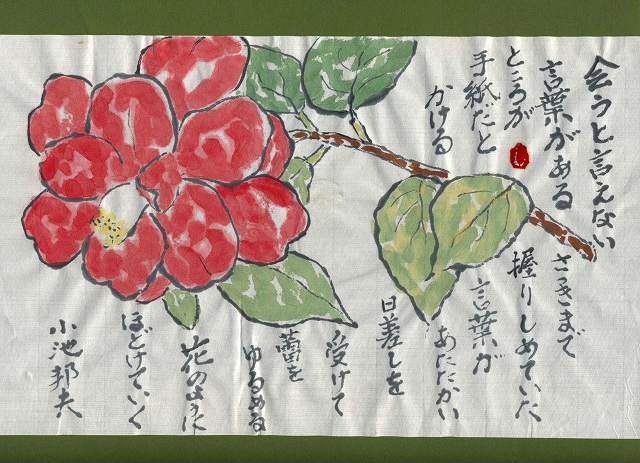 会うと言えない
言葉がある
ところが
手紙だと
かける
さっきまで
握りしめていた
言葉が
あたたかい
日差しを
受けて
蕾を
ゆるめる
花のように
ほどけていく
小池邦夫